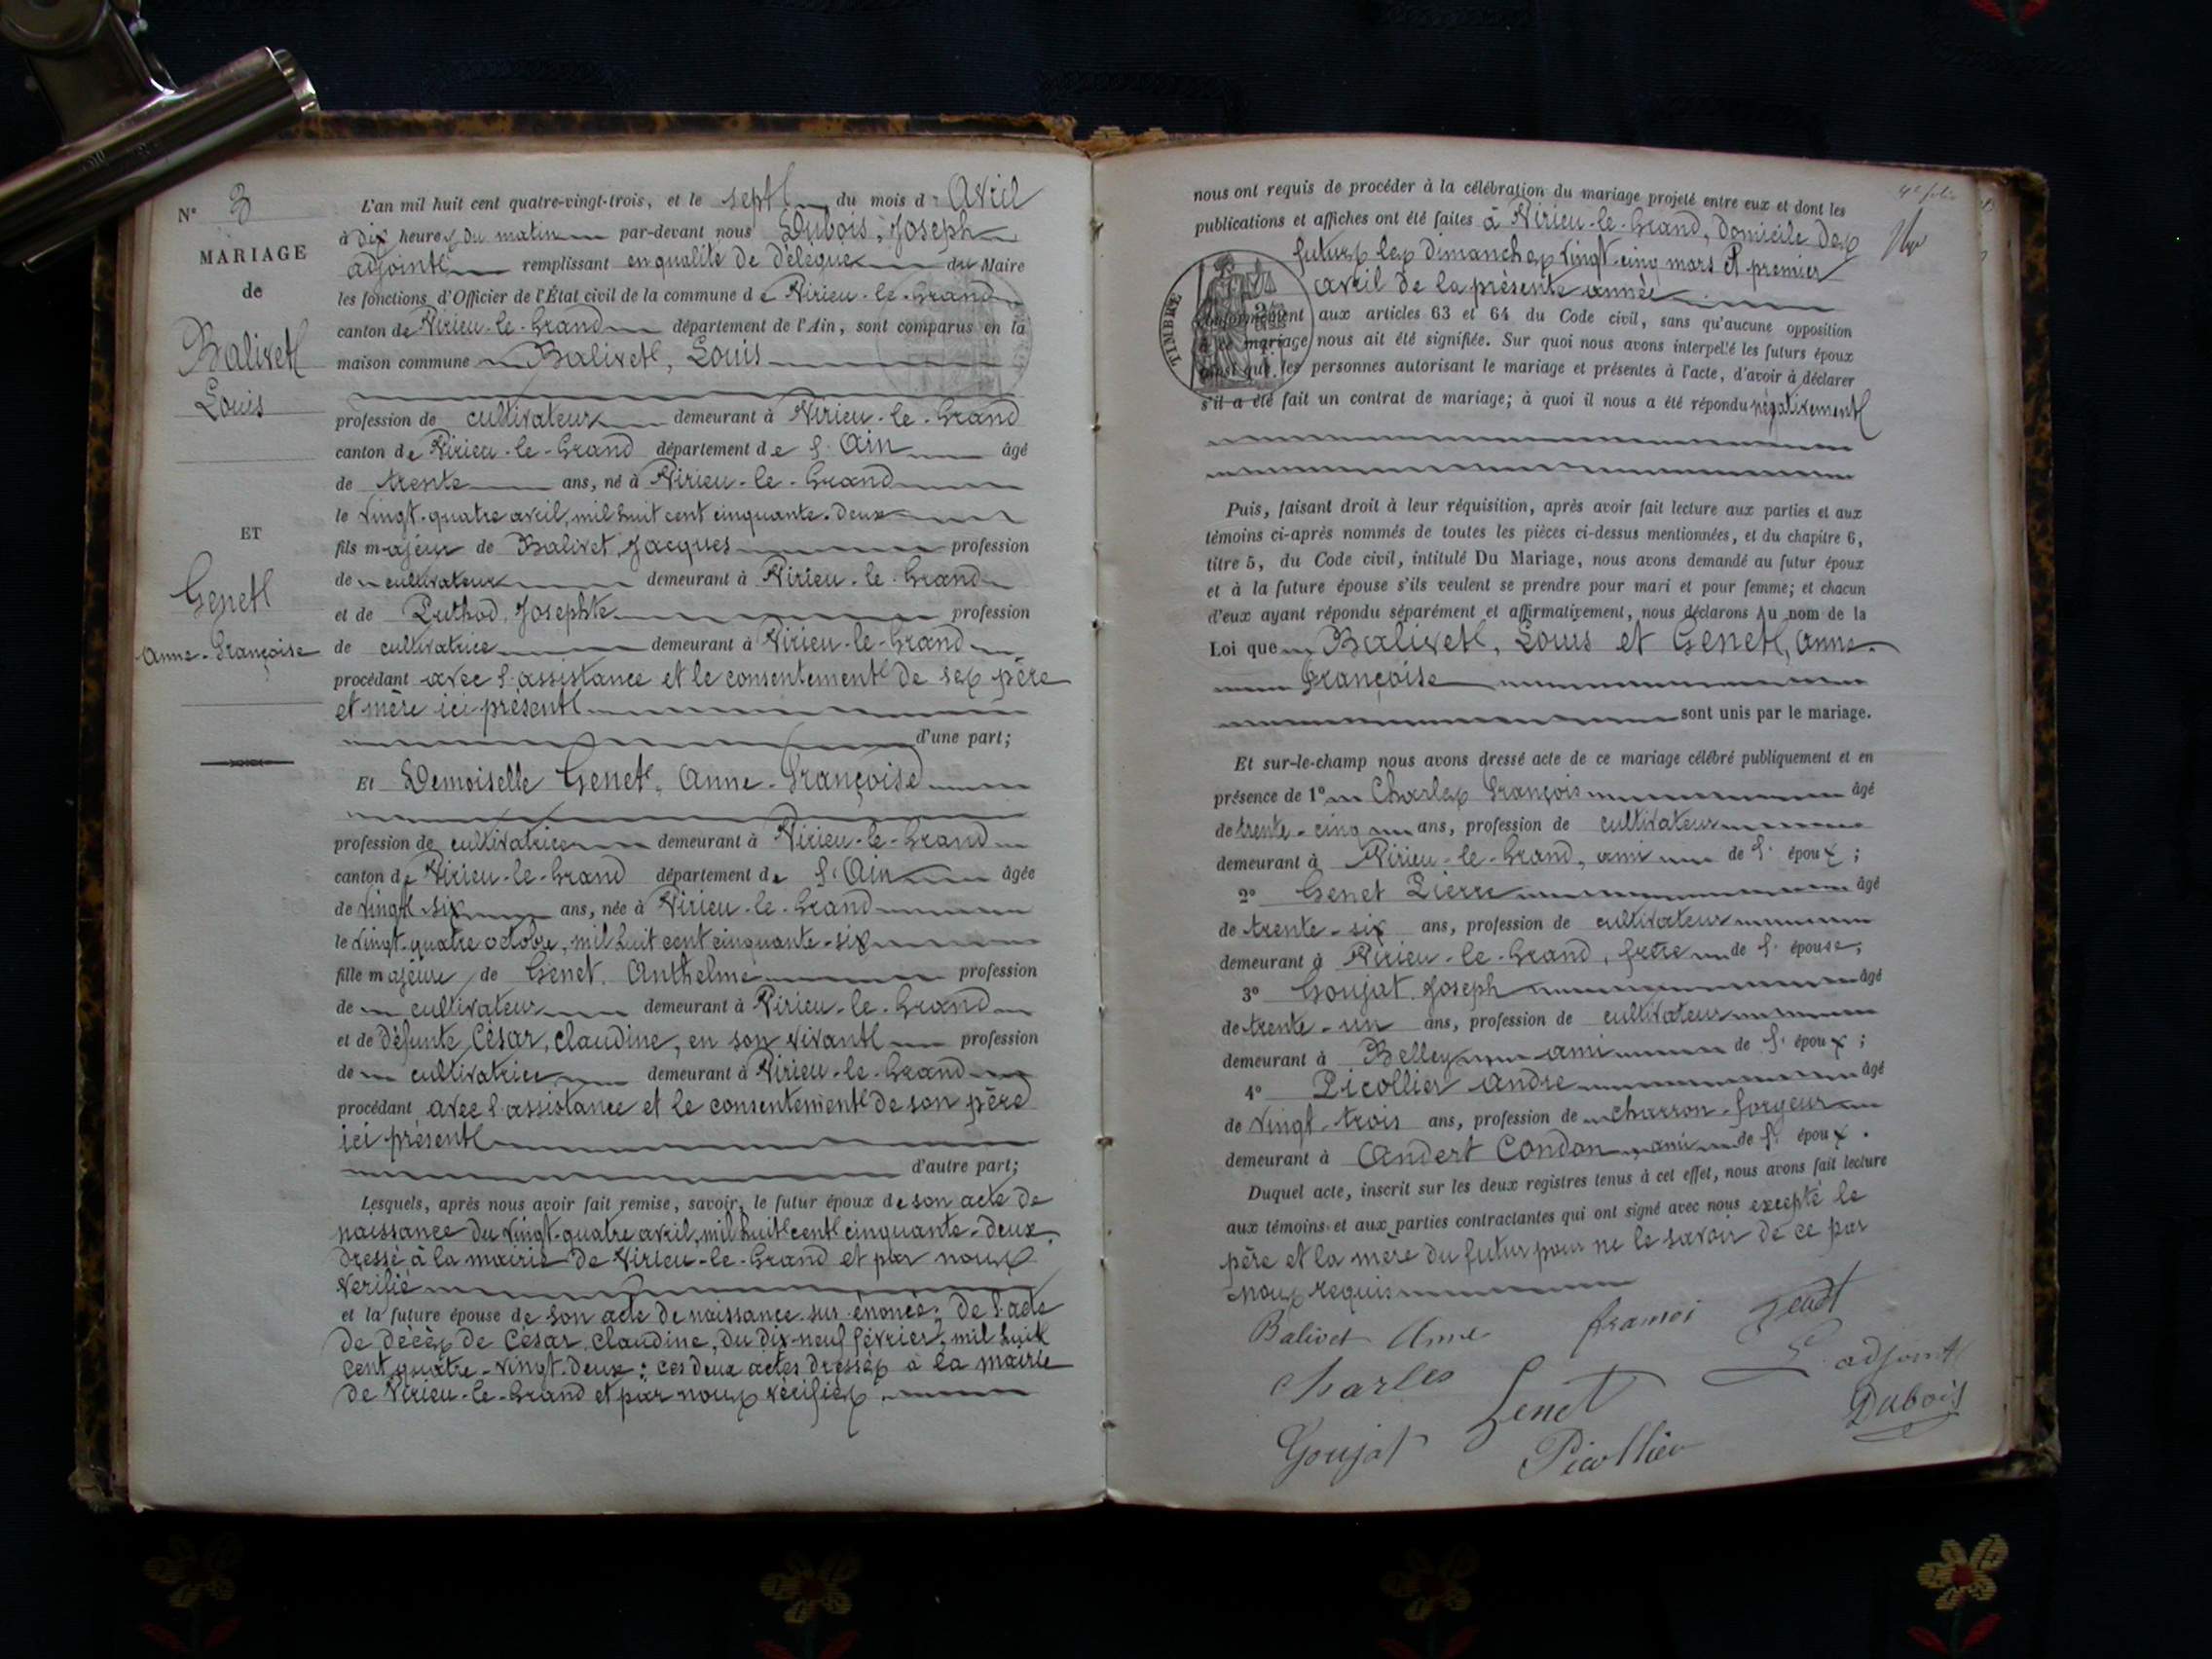 N° 3
MARIAGE
de
Balivet
Louis
ET
Genet
Anne-Françoise
L'an mil huit cent quatre-vingt-trois, et le sept du mois d' Avril
à dix heures du matin par-devant nous Dubois, Joseph
adjoint remplissant en qualité de délégué du Maire
les fonctions d'Officier de l'État civil de la commune de Virieu-le-Grand
canton de Virieu-le-Grand département de l'Ain, sont comparus en la
maison commune Balivet, Louis
profession de cultivateur demeurant à Virieu-le-Grand
canton de Virieu-le-Grand département de l'Ain âgé
de trente ans, né à Virieu-le-Grand
le vingt-quatre avril, mil huit cent cinquante-deux
fils majeur de Balivet, Jacques profession
de cultivateur demeurant à Virieu-le-Grand
et de Puthod, Josephte profession
de cultivatrice demeurant à Virieu-le-Grand
procédant avec l'assistance et le consentement de ses père
et mère ici présent
d'une part;
Et Demoiselle Genet, Anne-Françoise
profession de cultivatrice demeurant à Virieu-le-Grand
canton de Virieu-le-Grand département de l'Ain âgée
de vingt-six ans, née à Virieu-le-Grand
le vingt-quatre octobre, mil huit cent cinquante-six
fille majeure de Genet, Anthelme profession
de cultivateur demeurant à Virieu-le-Grand
et de défunte César, Claudine, en son vivant profession
de cultivatrice demeurant à Virieu-le-Grand
procédant avec l'assistance et le consentement de son père
ici présent
d'autre part;
Lesquels, après nous avoir fait remise, savoir, le futur époux de son acte de
naissance du vingt-quatre avril, mil huit cent cinquante-deux,
dressé à la mairie de Virieu-le-Grand et par nous
vérifié
et la future épouse de son acte de naissance sus-énoncé; de l'acte
de décès de César, Claudine, du dix-neuf février, mil huit
cent quatre-vingt-deux; ces deux actes dressés à la mairie
de Virieu-le-Grand et par nous vérifiés.
nous ont requis de procéder à la célébration du mariage projeté entre eux et dont les
publications et affiches ont été faites à Virieu-le-Grand, domicile des
futurs les dimanches vingt-cinq mars et premier
avril de la présente année
TIMBRE
conformément aux articles 63 et 64 du Code civil, sans qu'aucune opposition
à ce mariage nous ait été signifiée. Sur quoi nous avons interpellé les futurs époux
ainsi que les personnes autorisant le mariage et présentes à l'acte, d'avoir à déclarer
s'il a été fait un contrat de mariage; à quoi il nous a été répondu négativement
Puis, faisant droit à leur réquisition, après avoir fait lecture aux parties et aux
témoins ci-après nommés de toutes les pièces ci-dessus mentionnées, et du chapitre 6,
titre 5, du Code civil, intitulé Du Mariage, nous avons demandé au futur époux
et à la future épouse s'ils veulent se prendre pour mari et pour femme; et chacun
d'eux ayant répondu séparément et affirmativement, nous déclarons Au nom de la
Loi que Balivet, Louis et Genet, Anne-
Françoise
sont unis par le mariage.
Et sur-le-champ nous avons dressé acte de ce mariage célébré publiquement et en
présence de 1° Charles François âgé
de trente-cinq ans, profession de cultivateur
demeurant à Virieu-le-Grand, ami de l' époux;
2° Genet Pierre âgé
de trente-six ans, profession de cultivateur
demeurant à Virieu-le-Grand, frère de l' épouse;
3° Goujat Joseph âgé
de trente-un ans, profession de cultivateur
demeurant à Belley ami de l' époux;
4° Picollier André âgé
de vingt-trois ans, profession de charron-forgeur
demeurant à Andert Condon, ami de l' époux.
Duquel acte, inscrit sur les deux registres tenus à cet effet, nous avons fait lecture
aux témoins et aux parties contractantes qui ont signé avec nous excepté le
père et la mère du futur pour ne le savoir de ce par
nous requis
Balivet Anne fransoi Genet
Charles Genet L'adjoint
Goujat Picollier Dubois